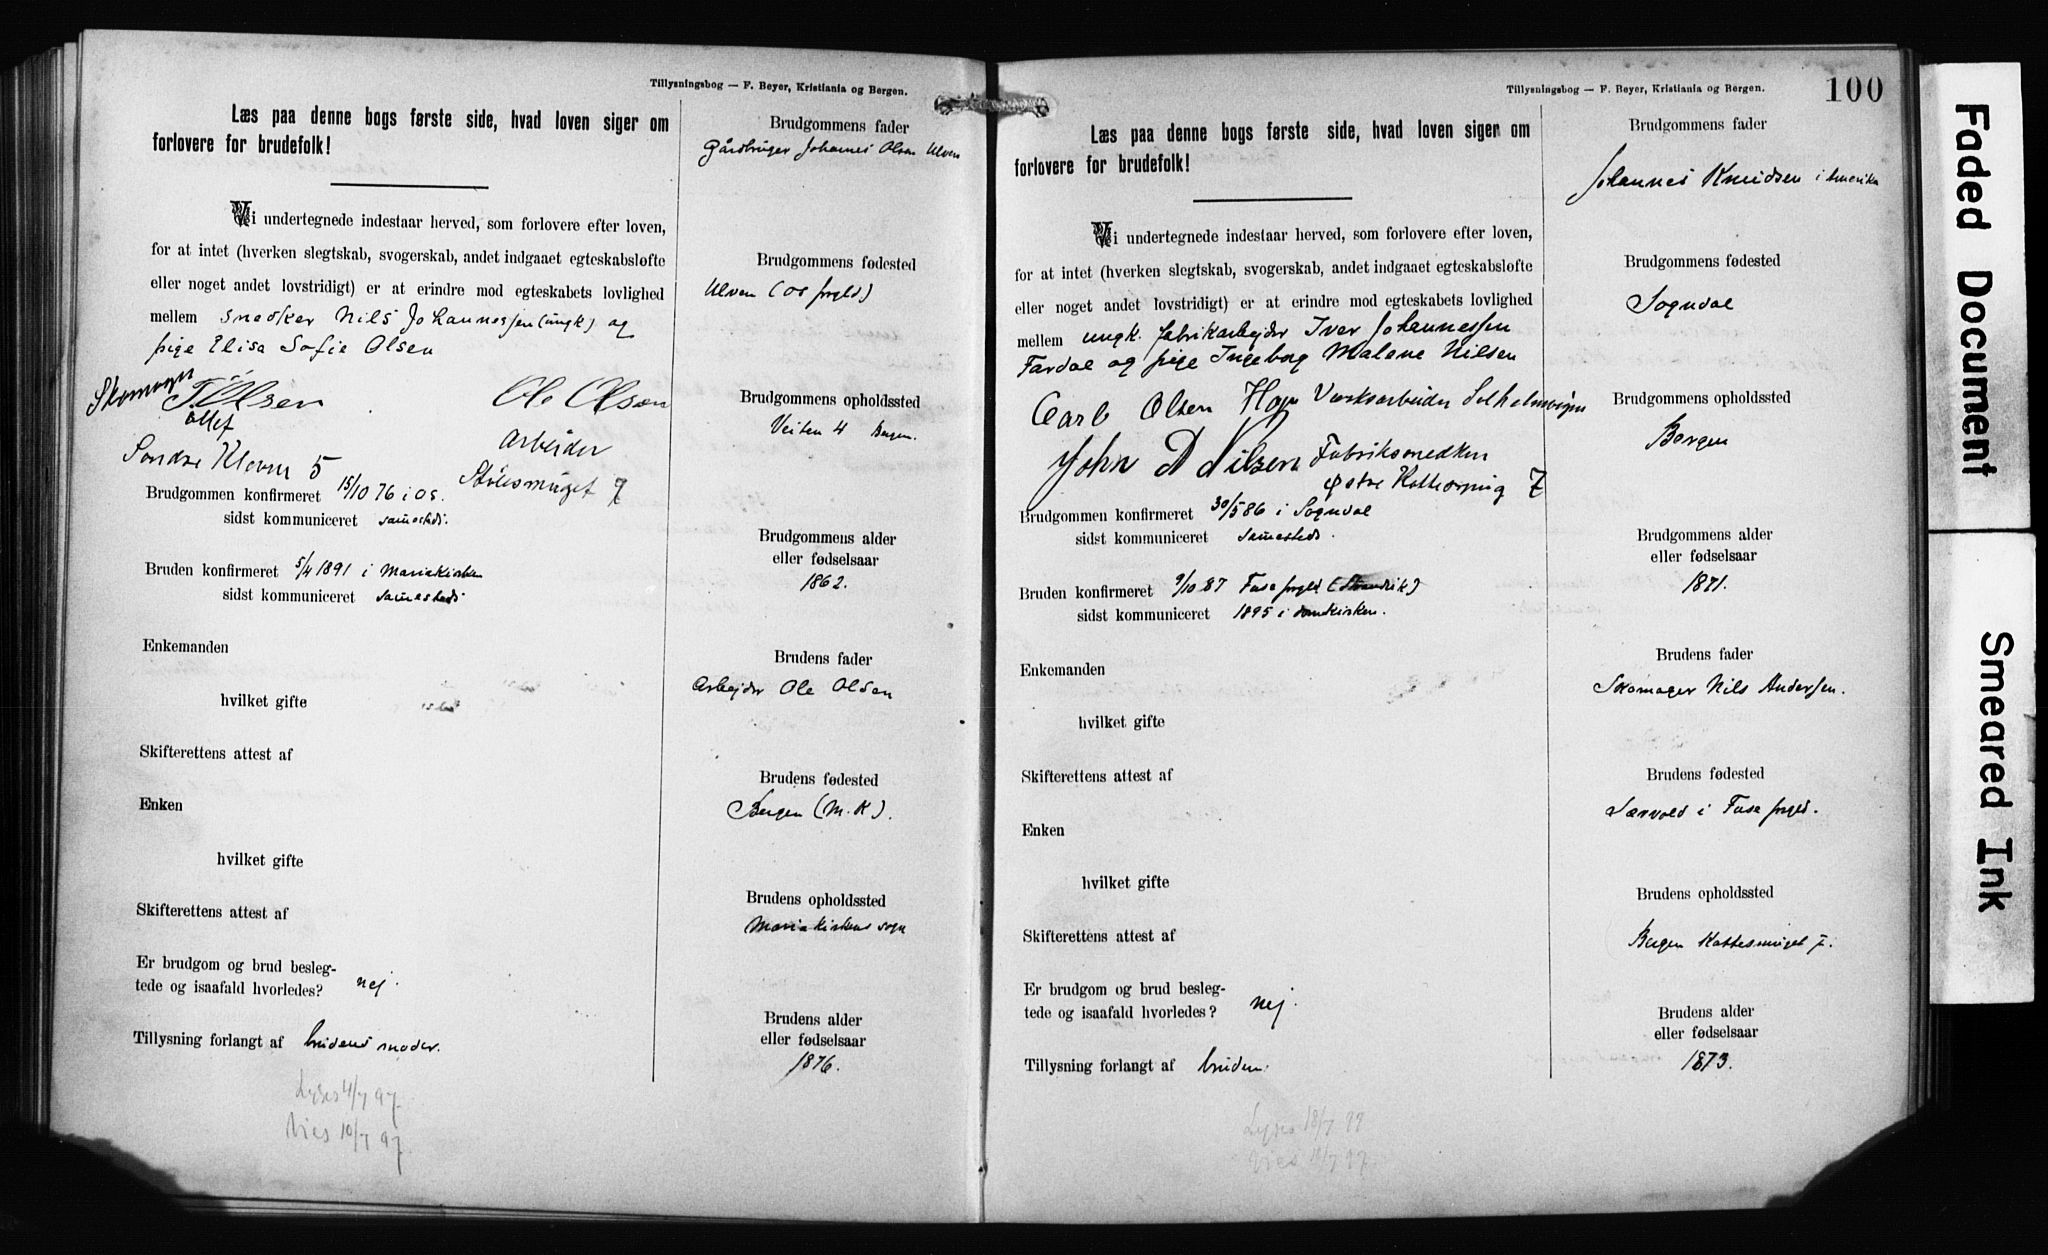 Tillysningsbog — F. Beyer, Kristiania og Bergen.
Læs paa denne bogs første side, hvad loven siger om
forlovere for brudefolk!
Vi undertegnede indestaar herved, som forlovere efter loven,
for at intet (hverken slegtskab, svogerskab, andet indgaaet egteskabsløfte
eller noget andet lovstridigt) er at erindre mod egteskabets lovlighed
mellem snedker Nils Johannessen (ungk) og
pige Elisa Sofie Olsen
Ole Olsen
Arbeider
5
7
Brudgommen konfirmeret 15/10 76 i Os.
sidst kommuniceret samesteds.
Bruden konfirmeret 5/4 1891 i Mariakirken
sidst kommuniceret samesteds
Enkemanden
hvilket gifte
Skifterettens attest af
Enken
hvilket gifte
Skifterettens attest af
Er brudgom og brud besleg-
tede og isaafald hvorledes? nej.
Tillysning forlangt af brudens moder.
Lyses 4/7 97.
Vies 10/7 97
Brudgommens fader
Gårdbruger Johannes Olsen Ulven
Brudgommens fødested
Ulven (Os prgld)
Brudgommens opholdssted
Veiten 4 Bergen.
Brudgommens alder
eller fødselsaar
1862.
Brudens fader
Arbejder Ole Olsen
Brudens fødested
Bergen (M.K).
Brudens opholdssted
Mariakirkens sogn
Brudens alder
eller fødselsaar
1876.
Tillysningsbog — F. Beyer, Kristiania og Bergen.
100
Læs paa denne bogs første side, hvad loven siger om
forlovere for brudefolk!
Vi undertegnede indestaar herved, som forlovere efter loven,
for at intet (hverken slegtskab, svogerskab, andet indgaaet egteskabsløfte
eller noget andet lovstridigt) er at erindre mod egteskabets lovlighed
mellem ungk. fabrikarbejder Iver Johannessen
Fardal og pige Ingeborg Malene Nilsen
Carl Olsen Værksarbeider
John A Nilsen Fabriksnedker
Østre 7
Brudgommen konfirmeret 30/5 86 i Sogndal
sidst kommuniceret samesteds.
Bruden konfirmeret 9/10 87 Fuse prgld
sidst kommuniceret 1895 i domkirken.
Enkemanden
hvilket gifte
Skifterettens attest af
Enken
hvilket gifte
Skifterettens attest af
Er brudgom og brud besleg-
tede og isaafald hvorledes? nej.
Tillysning forlangt af bruden.
Lyses 18/7 97
Vies
Brudgommens fader
Johannes Knudsen i Amerika
Brudgommens fødested
Sogndal
Brudgommens opholdssted
Bergen
Brudgommens alder
eller fødselsaar
1871.
Brudens fader
Skomager Nils Andersen.
Brudens fødested
Særvold i Fuse prgld.
Brudens opholdssted
Bergen Kattesmuget 7.
Brudens alder
eller fødselsaar
1873.
Faded Document
Smeared Ink